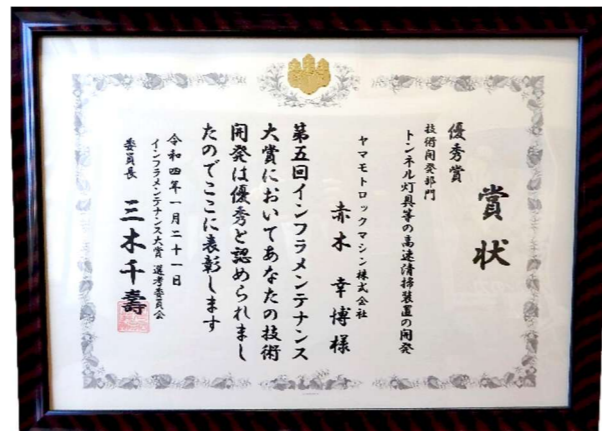 賞状
優秀賞
技術開発部門
トンネル灯具等の高速清掃装置の開発
ヤマモトロックマシン株式会社
赤木幸博様
第五回インフラメンテナンス
大賞においてあなたの技術
開発は優秀と認められまし
たのでここに表彰します
令和四年一月二十一日
インフラメンテナンス大賞 選考委員会
委員長 三木千壽